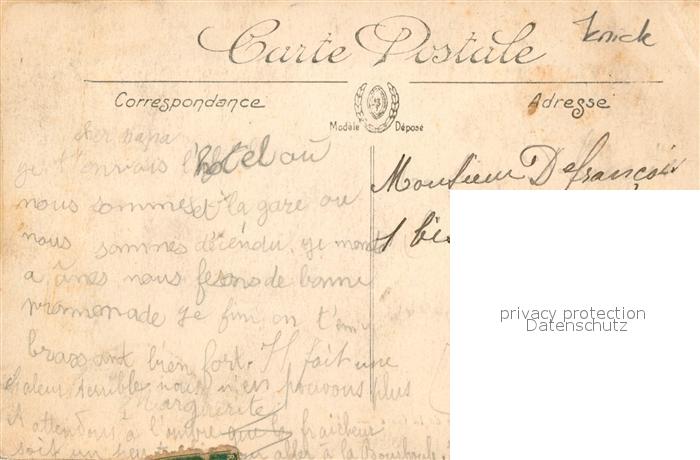 Knick
Carte Postale
Correspondance
Adresse
Modèle Déposé
cher papa
je t'envais l'hotel où
nous sommes et la gare ou
nous sommes déiendu. je monte
a ânes nous fesons de bonne
promenade je fini on t'em
brassant bien fort. Il fait une
chaleur terrible nous n'en pouvons plus
Margrerite
et attendons à l'ombre que la fraicheur
soit un peu aller a la Bourboule
Monsieur Defrançois
1 bis
privacy protection
Datenschutz